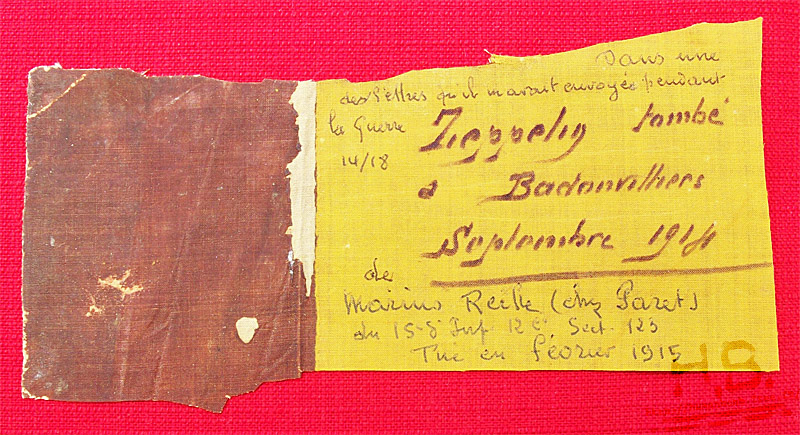 Dans une
des lettres qu'il m'avait envoyée pendant
la Guerre
14/18
Zeppelin tombé
a Badonvillers
Septembre 1914
de
Marius Reille (chez Paret)
du 158 Inf 12e Sect. 123
Tué en février 1915
H.B.